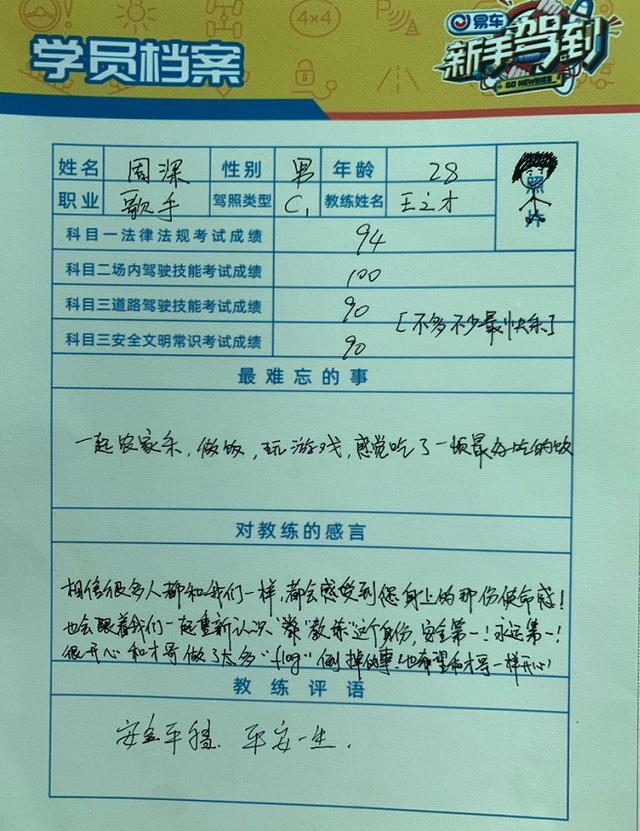 学员档案
易车
新手驾到
GO NEWBIES
4×4
P
姓名 周深 性别 男 年龄 28
照片
职业 歌手 驾照类型 C1 教练姓名 王之才
科目一法律法规考试成绩 94
科目二场内驾驶技能考试成绩 100
科目三道路驾驶技能考试成绩 90
[不多不少最快乐]
科目三安全文明常识考试成绩 90
最难忘的事
一起农家乐，做饭，玩游戏，感觉吃了一顿最好吃的饭
对教练的感言
相信很多人都和我们一样，都会感受到您身上的那份使命感！
也会跟着我们一起重新认识"教练"这个身份，安全第一！永远第一！
很开心和才哥做了太多"flag"倒掉的事！也希望和才哥一样开心！
教练评语
安全平稳、平安一生.